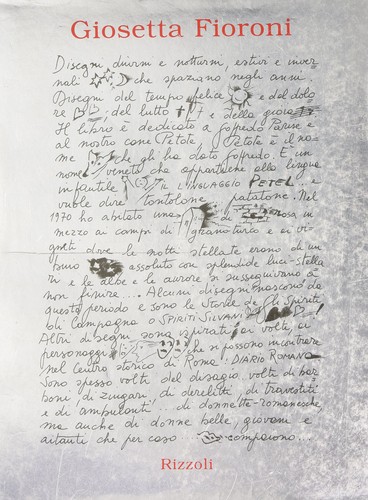 Giosetta Fioroni
Disegni, diurni e notturni, estivi e inver
nali che spaziano negli anni.
Disegni del tempo felice e del dolo
re del lutto e della gioia
Il libro è dedicato a Goffredo Parise e
al nostro cane Petote, Petote è il no
me che gli ha dato Goffredo. È un
nome veneto che appartiene alla lingua
infantile IL LINGUAGGIO PETEL... e
vuole dire tontolone patatone. Nel
1970 ho abitato una di rosa, in
mezzo ai campi di granoturco e ai vi
gneti dove le notti stellate erano di un
assoluto con splendide luci-stella
ri e le albe e le aurore si susseguivano a
non finire... Alcuni disegni nascono da
questo periodo e sono le Storie degli Spiriti
di Campagna o SPIRITI SILVANI
Altri disegni sono ispirati a volte, ai
personaggi che si possono incontrare
nel centro storico di Roma, DIARIO ROMANO
Sono spesso volti del disagio, volti di bar
boni, di zingari, di derelitti, di travestiti
e di ambulanti... di donnette romanesche
ma anche di donne belle, giovani e
aitanti che per caso compaiono...
Rizzoli